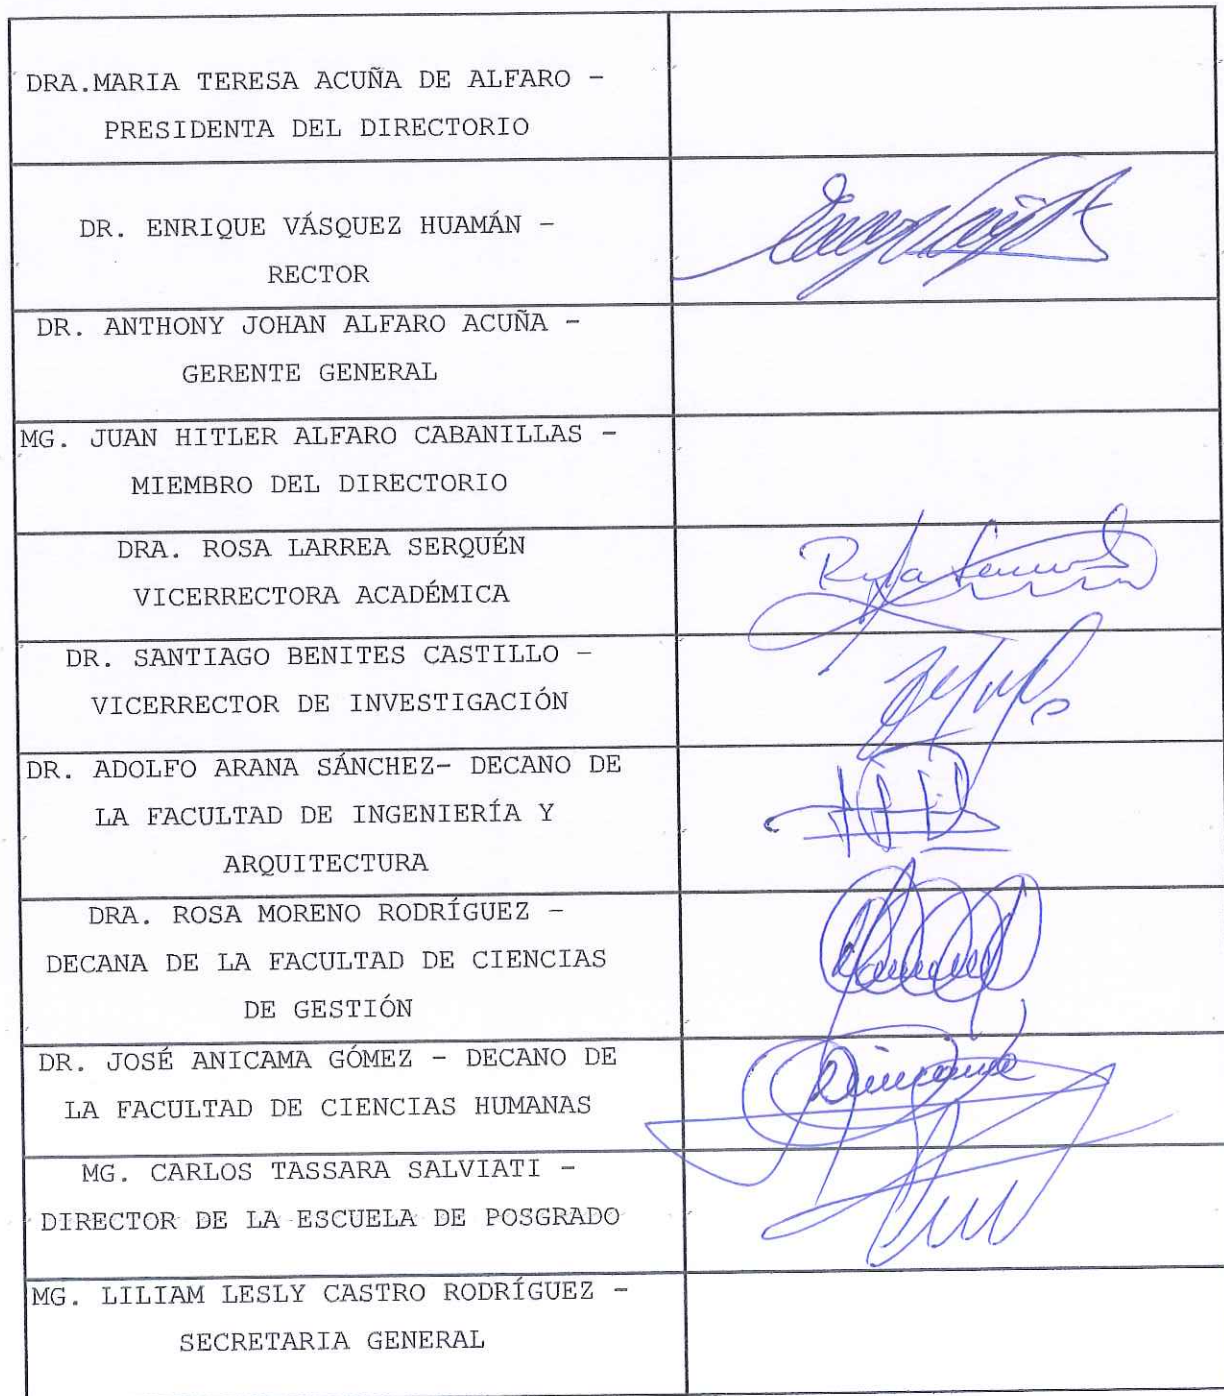 DRA.MARIA TERESA ACUÑA DE ALFARO -
PRESIDENTA DEL DIRECTORIO
DR. ENRIQUE VÁSQUEZ HUAMÁN -
RECTOR
DR. ANTHONY JOHAN ALFARO ACUÑA -
GERENTE GENERAL
MG. JUAN HITLER ALFARO CABANILLAS -
MIEMBRO DEL DIRECTORIO
DRA. ROSA LARREA SERQUÉN
VICERRECTORA ACADÉMICA
DR. SANTIAGO BENITES CASTILLO -
VICERRECTOR DE INVESTIGACIÓN
DR. ADOLFO ARANA SÁNCHEZ- DECANO DE
LA FACULTAD DE INGENIERÍA Y
ARQUITECTURA
DRA. ROSA MORENO RODRÍGUEZ -
DECANA DE LA FACULTAD DE CIENCIAS
DE GESTIÓN
DR. JOSÉ ANICAMA GÓMEZ - DECANO DE
LA FACULTAD DE CIENCIAS HUMANAS
MG. CARLOS TASSARA SALVIATI -
DIRECTOR DE LA ESCUELA DE POSGRADO
MG. LILIAM LESLY CASTRO RODRÍGUEZ -
SECRETARIA GENERAL